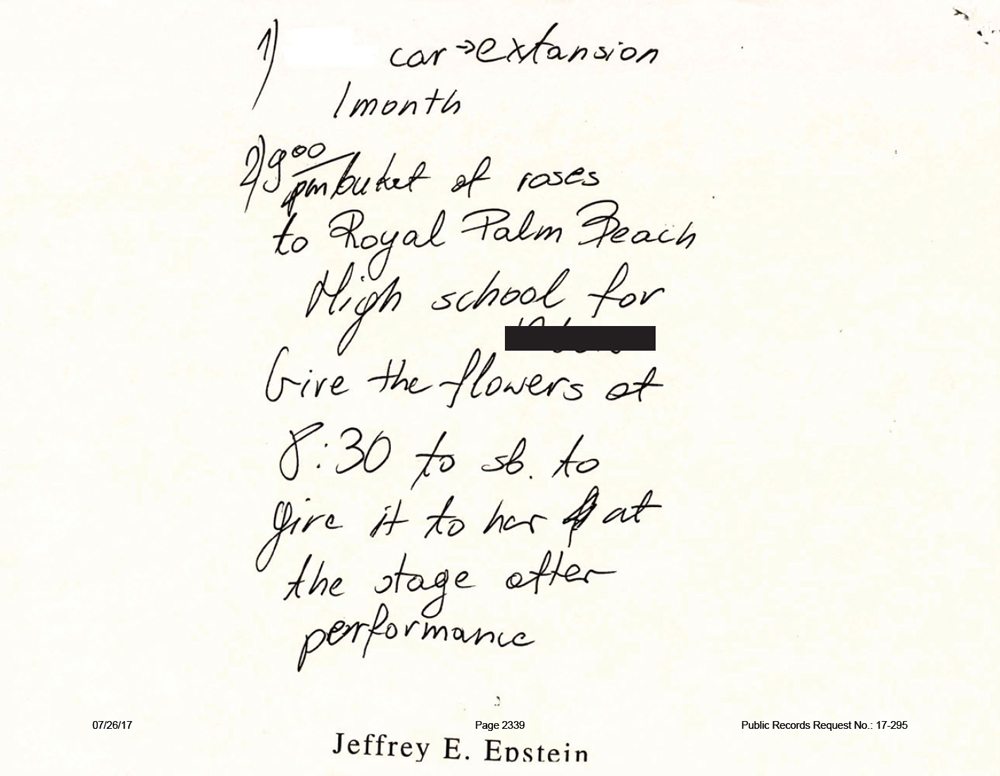 1) car → extansion
1 month
2) 9⁰⁰ pm buket of roses
to Royal Palm Beach
High school for
Give the flowers at
8:30 to sb. to
give it to her at
the stage after
performance
07/26/17 Page 2339 Public Records Request No.: 17-295
Jeffrey E. Epstein